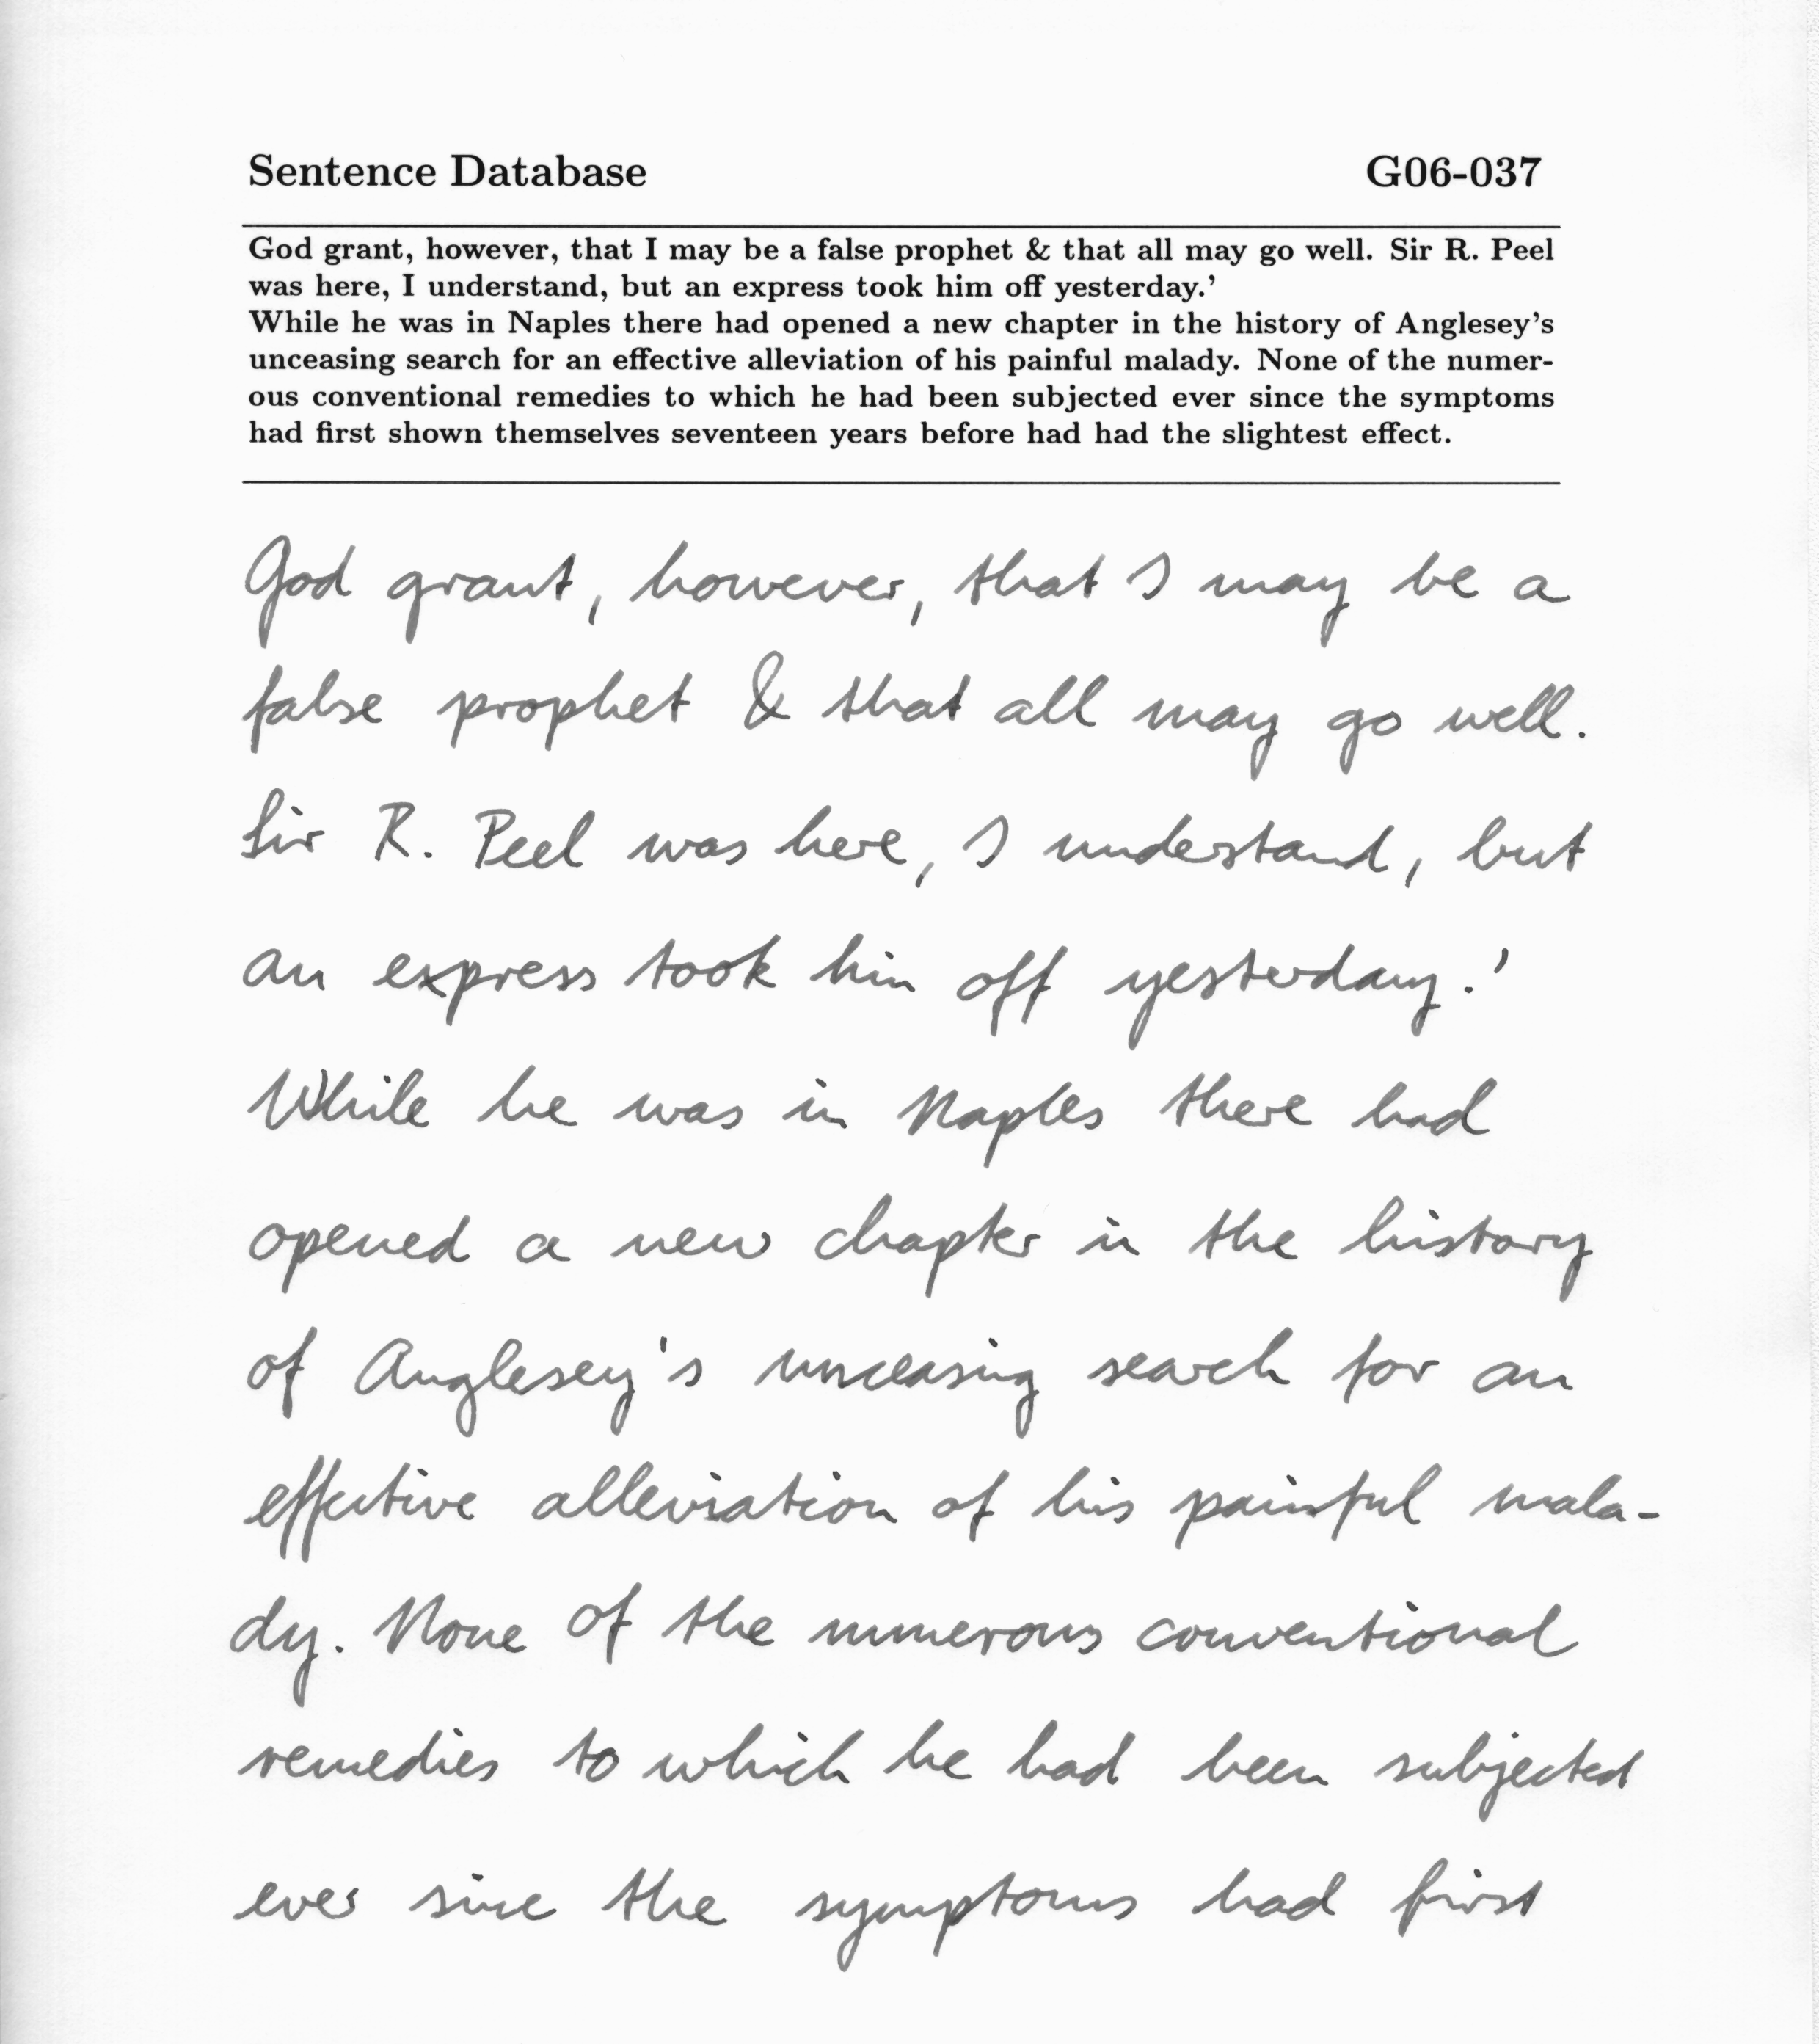 Sentence Database G06-037
God grant, however, that I may be a false prophet & that all may go well. Sir R. Peel
was here, I understand, but an express took him off yesterday.’
While he was in Naples there had opened a new chapter in the history of Anglesey’s
unceasing search for an effective alleviation of his painful malady. None of the numer-
ous conventional remedies to which he had been subjected ever since the symptoms
had first shown themselves seventeen years before had had the slightest effect.
God grant, however, that I may be a
false prophet & that all may go well.
Sir R. Peel was here, I understand, but
an express took him off yesterday.'
While he was in Naples there had
opened a new chapter in the history
of Anglesey's unceasing search for an
effective alleviation of his painful mala-
dy. None of the numerous conventional
remedies to which he had been subjected
ever since the symptoms had first